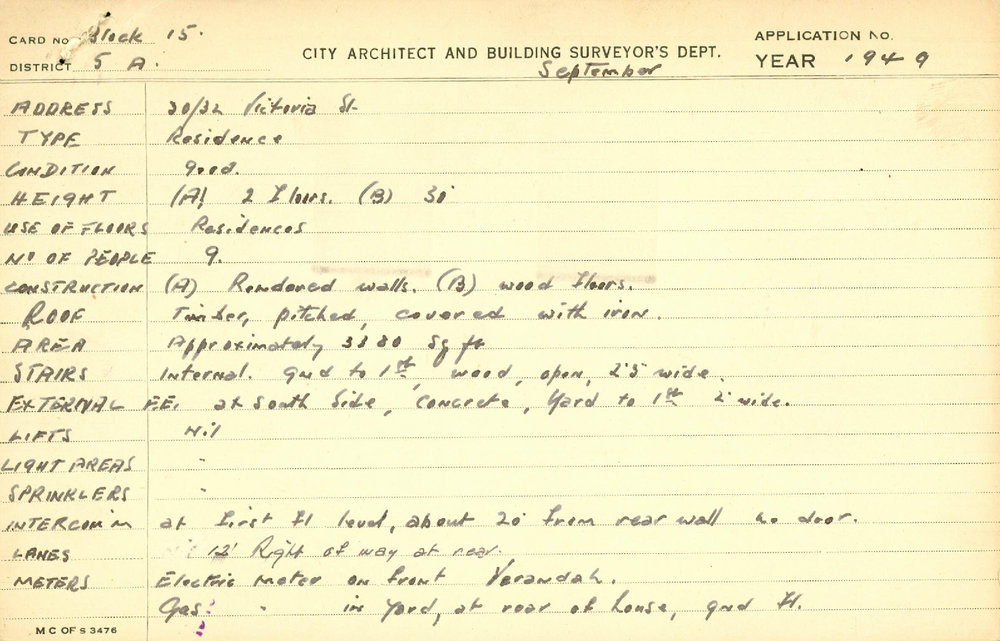 CARD No. Block 15.
APPLICATION No.
CITY ARCHITECT AND BUILDING SURVEYOR'S DEPT.
DISTRICT 5 A.
September
YEAR 1949
ADDRESS 30/32 Victoria St.
TYPE Residence
CONDITION good.
HEIGHT (A) 2 Floors. (B) 30'
USE OF FLOORS Residences
No OF PEOPLE 9.
CONSTRUCTION (A) Rendered walls. (B) wood floors.
ROOF Timber, pitched, covered with iron.
AREA Approximately 3380 Sq ft
STAIRS Internal. gnd to 1st, wood, open, 2'5" wide.
EXTERNAL F.E. at South Side, Concrete, Yard to 1st 2' wide.
LIFTS Nil
LIGHT AREAS "
SPRINKLERS "
INTERCOM'N at first fl level, about 20' from rear wall no door.
LANES 12' Right of way at rear.
METERS Electric meter on front Verandah.
Gas: " in Yard, at rear of house, gnd fl.
M C OF S 3476